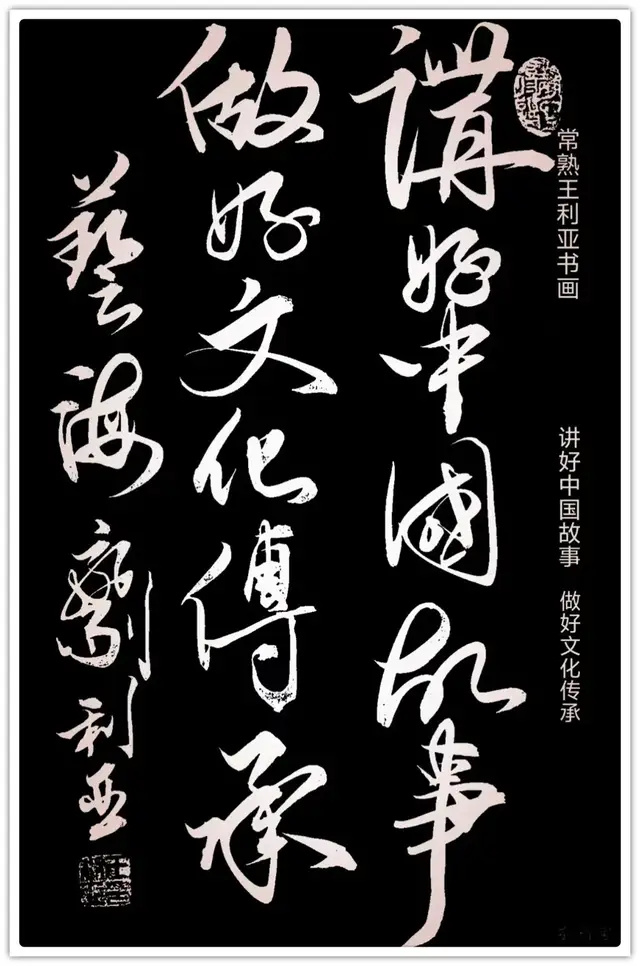 常熟王利亚书画
讲好中国故事 做好文化传承
講好中國故事
做好文化傳承
藝海 利亚